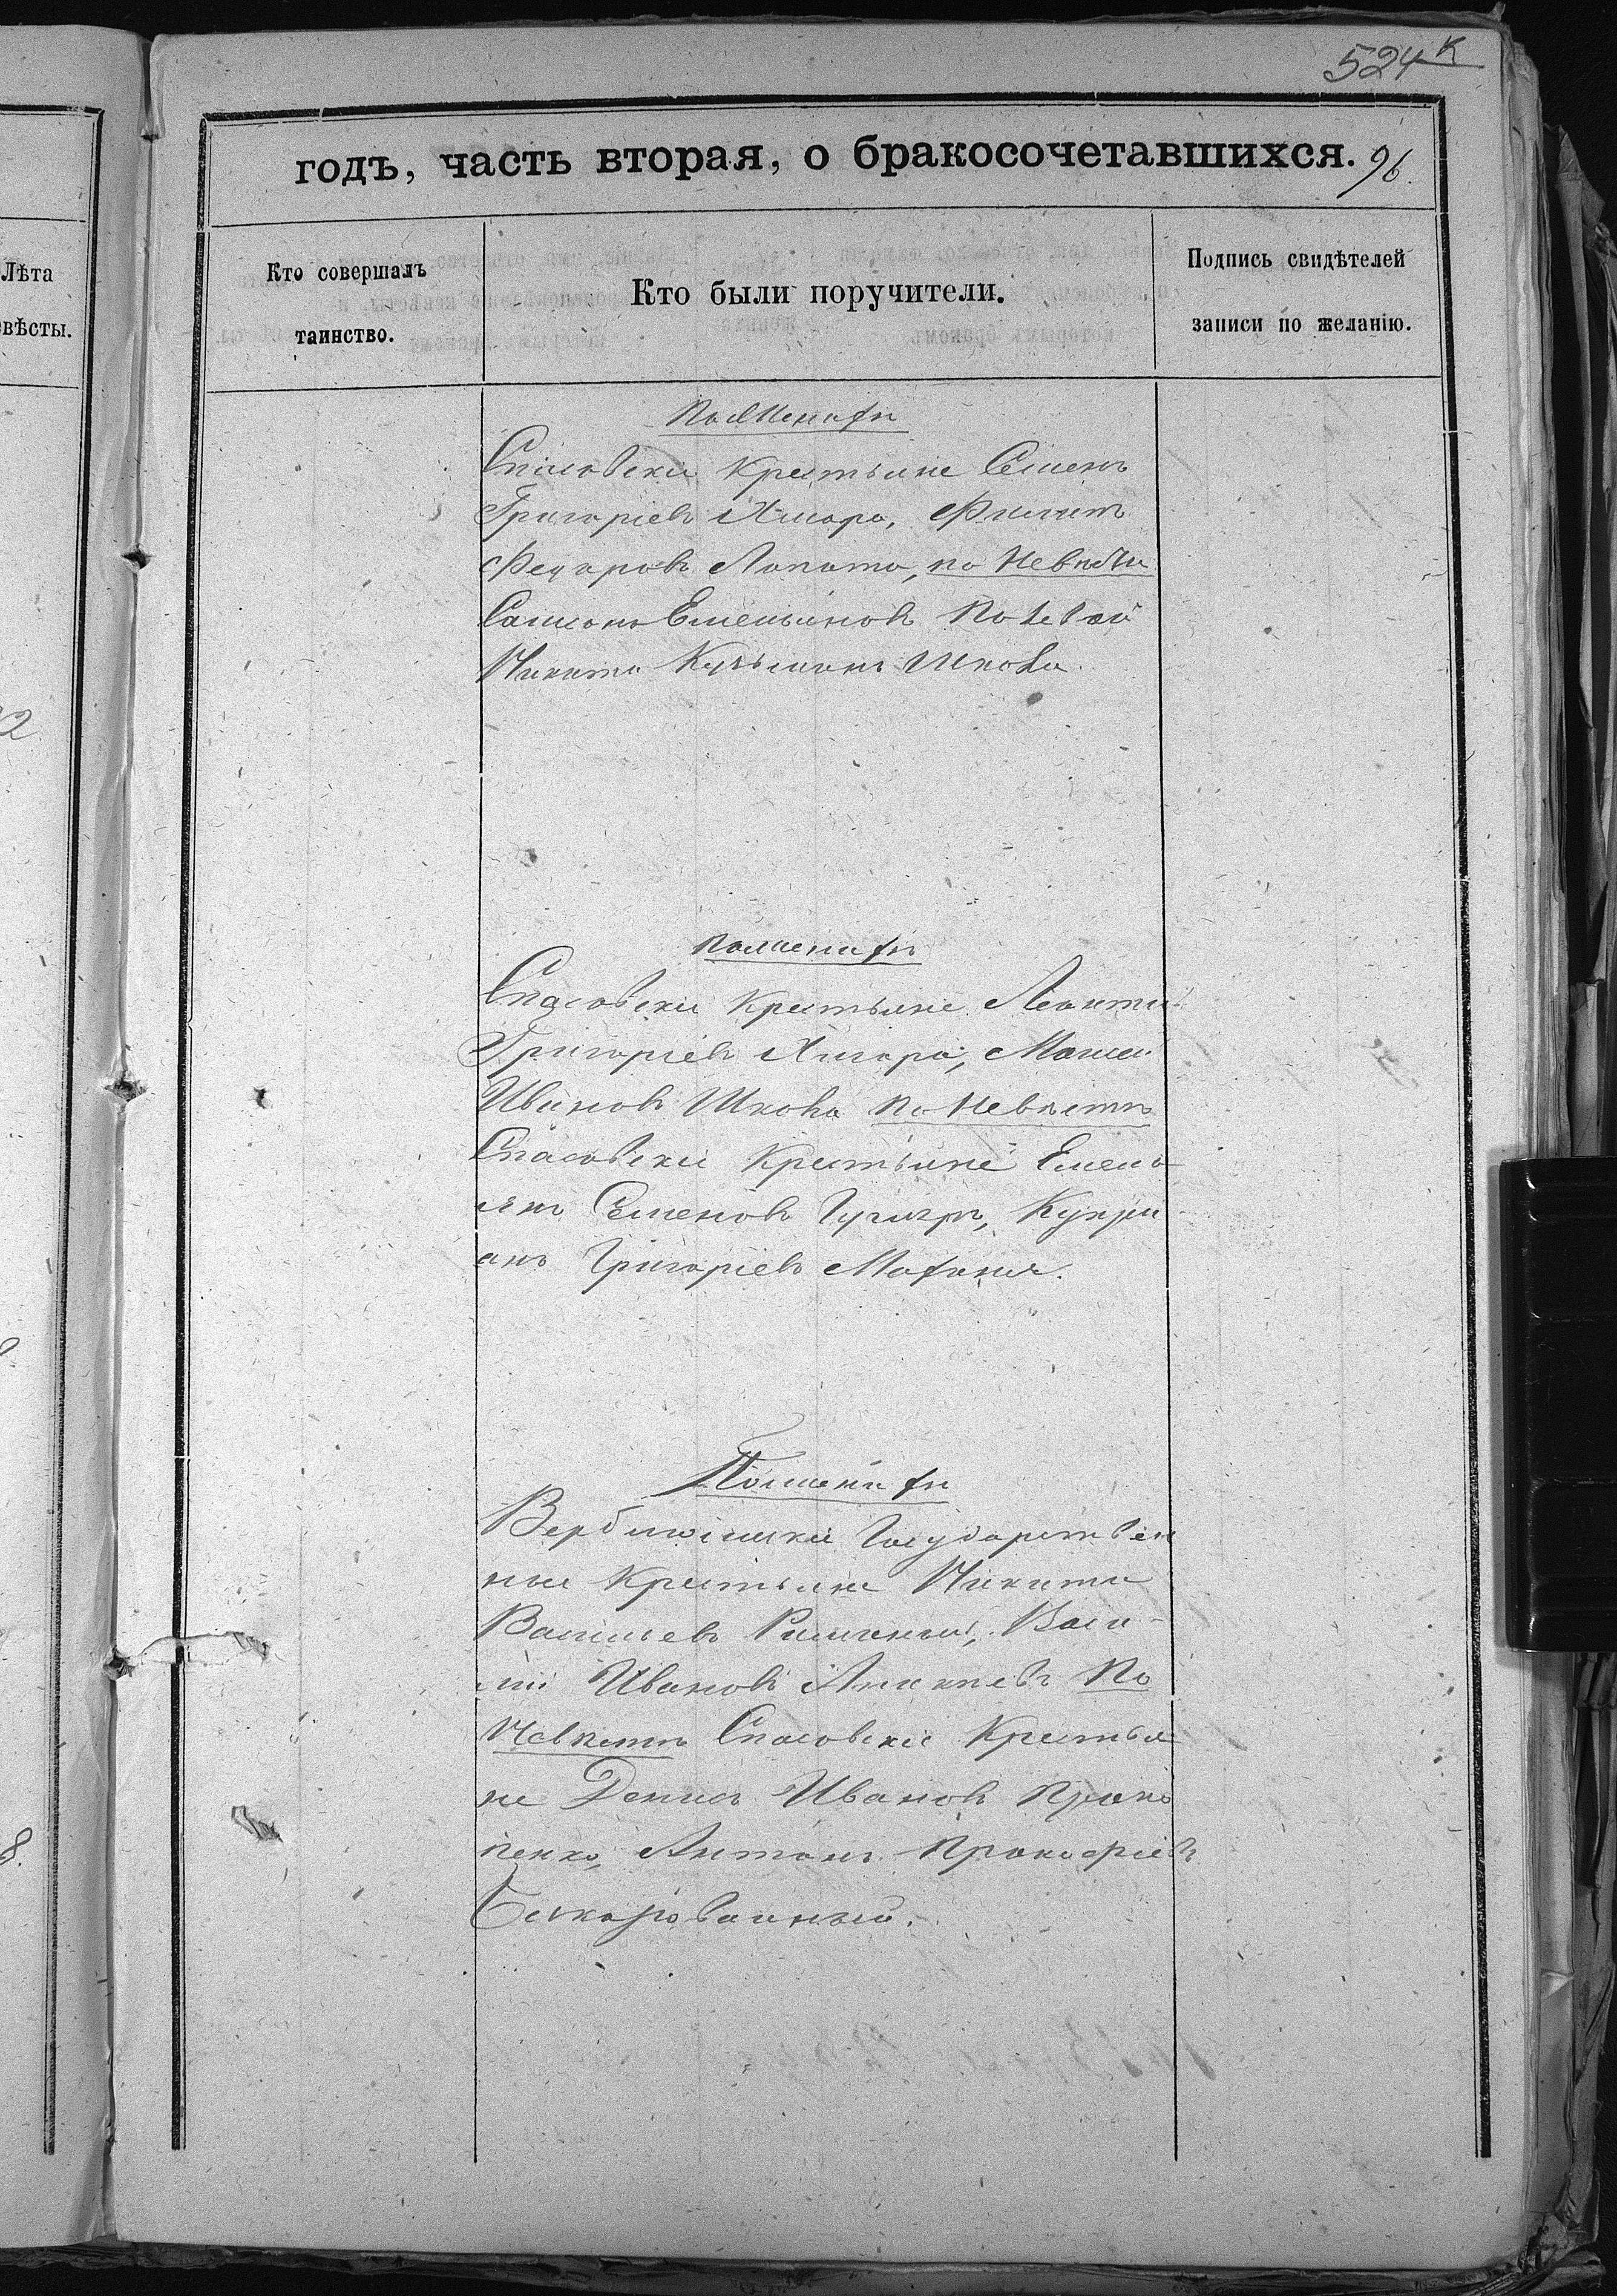 524 к
годъ, часть вторая, о бракосочетавшихся. 96.
Лѣта
евѣсты.
Кто совершалъ
таинство.
Кто были поручители.
Подпись свидѣтелей
записи по желанію.
По Жениху
Спасовскіи Крестьяне Семенъ
Григоріевъ Хмара, Филипъ
Федоровъ Лопата, по Невѣсти
Емельяновъ
Никита Кузьминъ Шкода.
По жениху
Спасовскіи Крестьяне Леонтій
Григоріевъ Хмара,
Ивановъ Шкода по Невѣстѣ
Спасовскіи Крестьяне Емель-
янъ Семеновъ Купри-
анъ Григоріевъ
По жениху
Государствен
ныи Крестьяне Никита
Васильевъ Васи-
лій Ивановъ По
Невѣстѣ Спасовскіе Крестья
не Денисъ Ивановъ Проко
пенко, Антонъ Прокофіевъ
8.